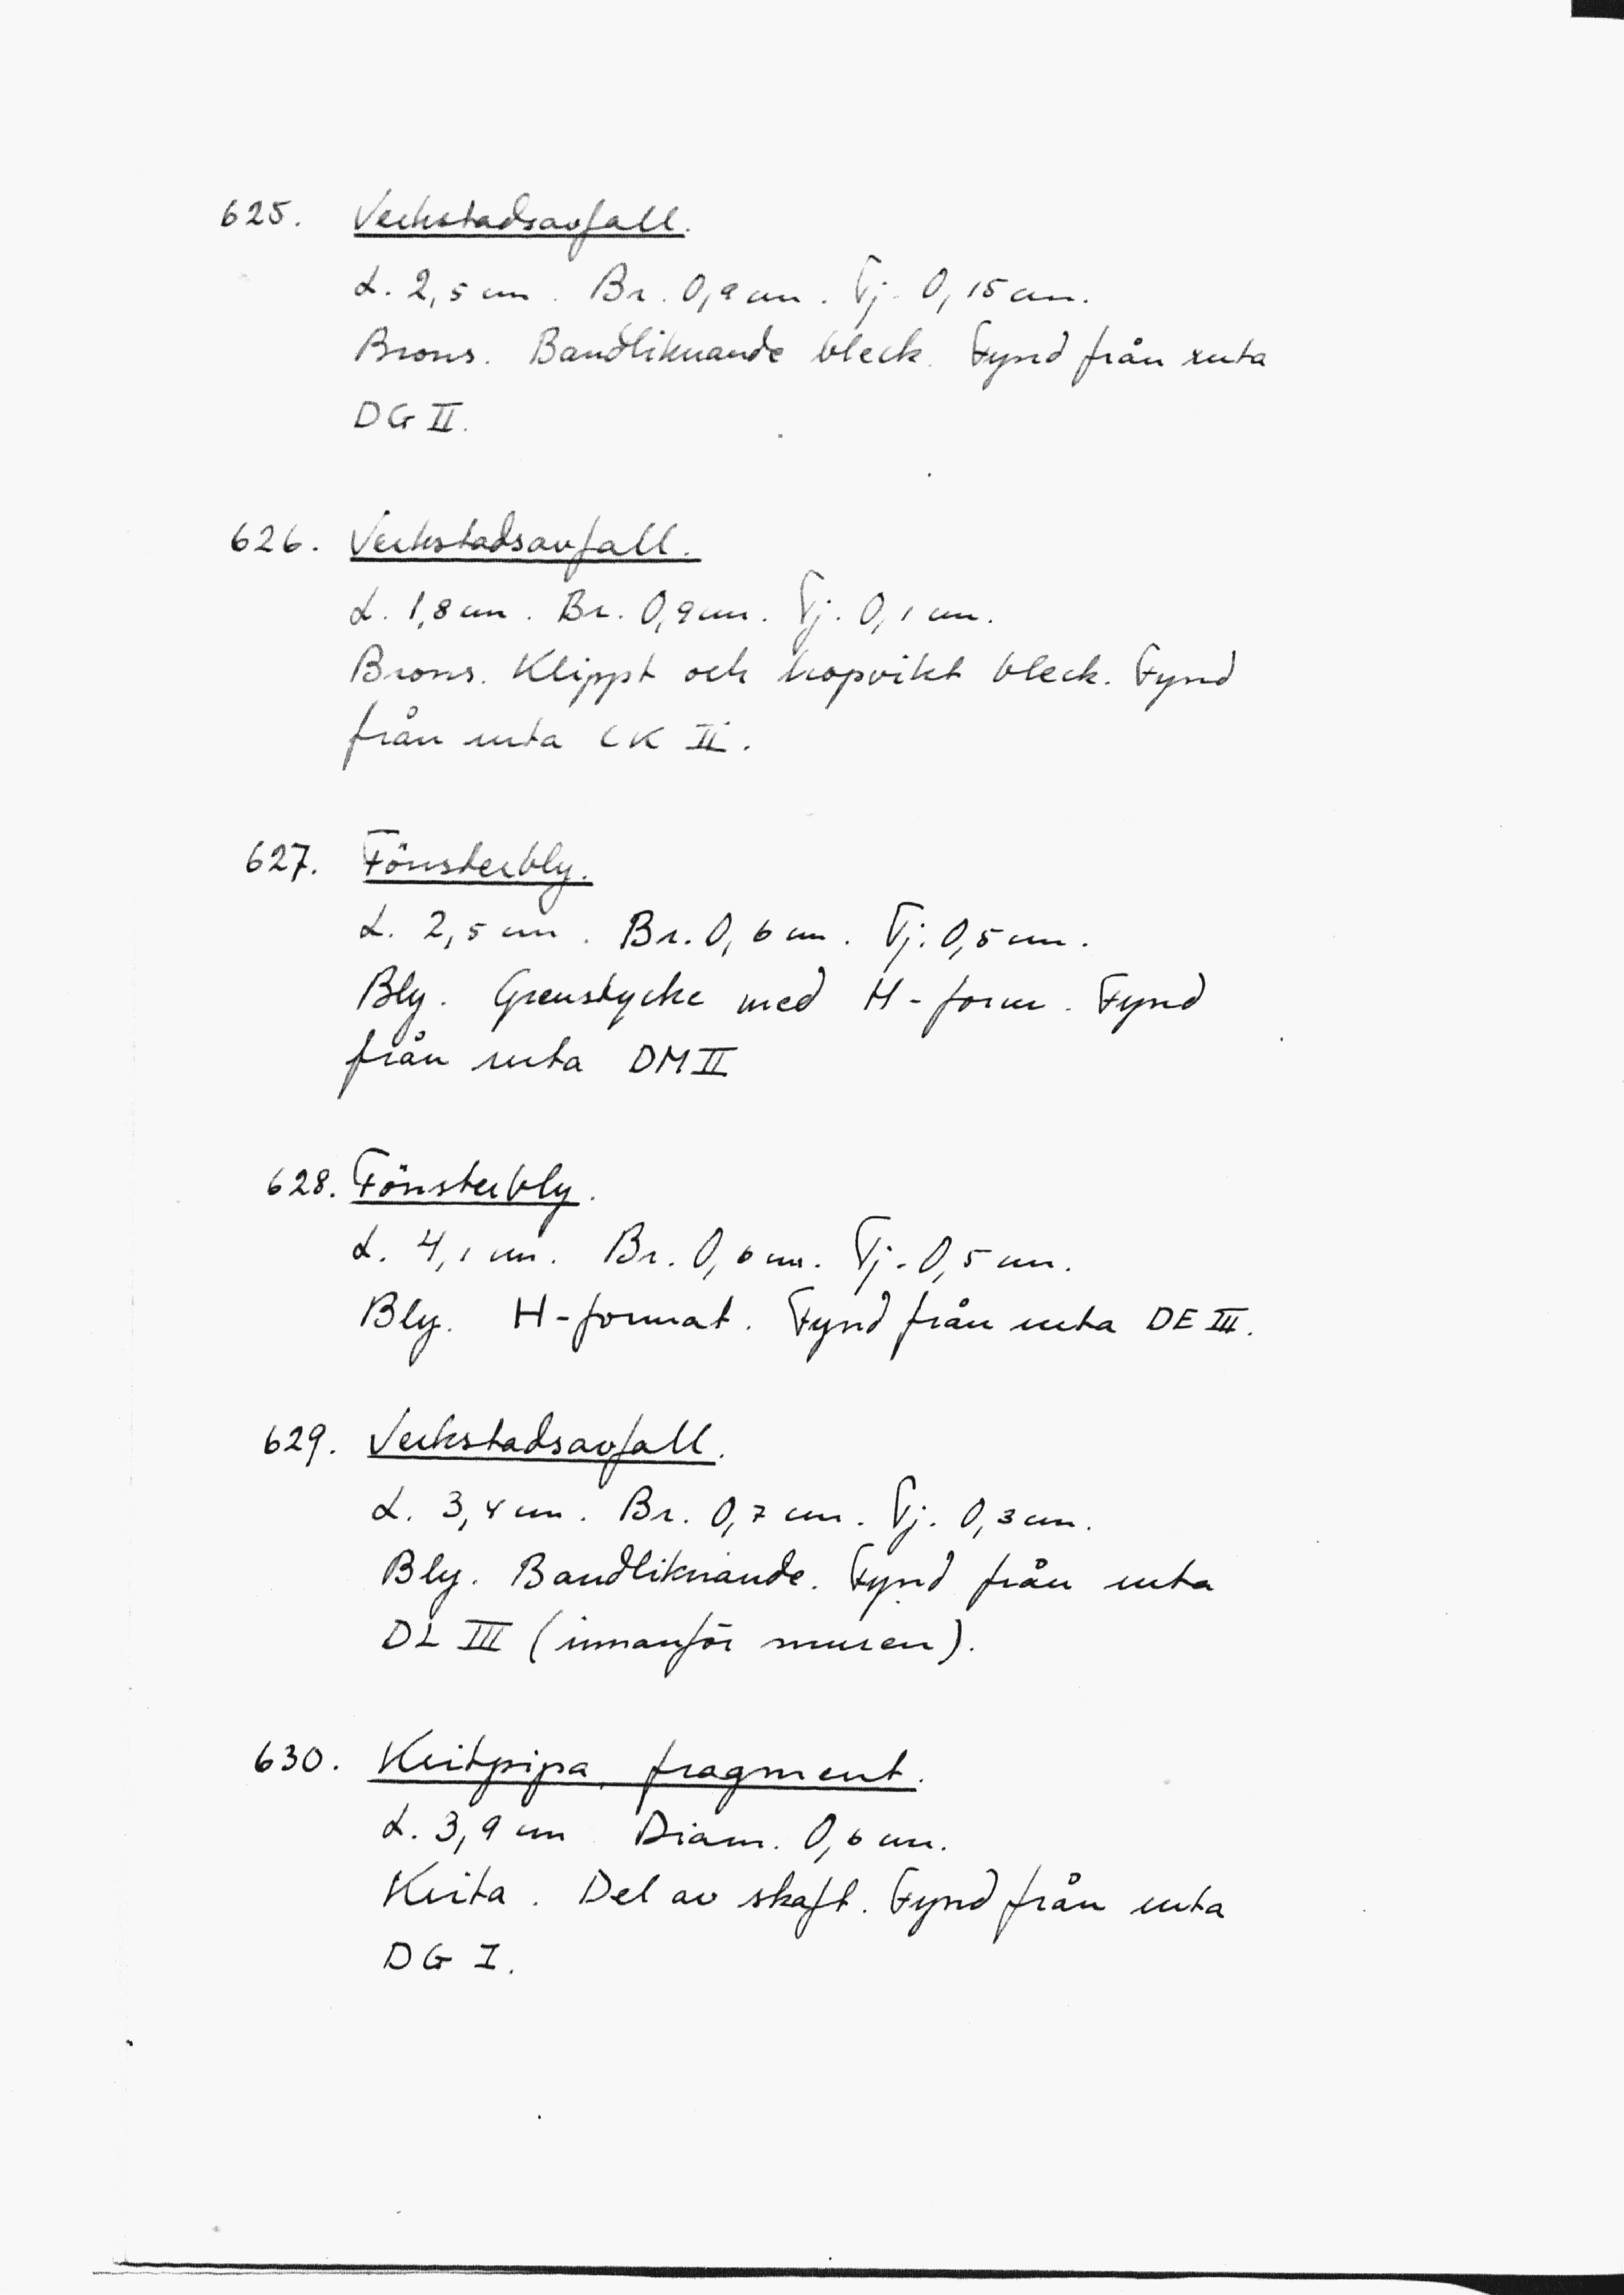 625. Verkstadsavfall.
L. 2,5 cm. Br. 0,9 cm. Tj. 0,15 cm.
Brons. Bandliknande bleck. Fynd från ruta
DG II.
626. Verkstadsavfall.
L. 1,8 cm. Br. 0,9 cm. Tj. 0,1 cm.
Brons. Klippt och hopvikt bleck. Fynd
från ruta CK II.
627. Fönsterbly.
L. 2,5 cm. Br. 0,6 cm. Tj. 0,5 cm.
Bly. Grenstycke med H-form. Fynd
från ruta DM II
628. Fönsterbly.
L. 4,1 cm. Br. 0,6 cm. Tj. 0,5 cm.
Bly. H-format. Fynd från ruta DE III.
629. Verkstadsavfall.
L. 3,4 cm. Br. 0,7 cm. Tj. 0,3 cm.
Bly. Bandliknande. Fynd från ruta
DL III (innanför muren).
630. Kritpipa, fragment.
L. 3,9 cm Diam. 0,6 cm.
Krita. Del av skaft. Fynd från ruta
DG I.